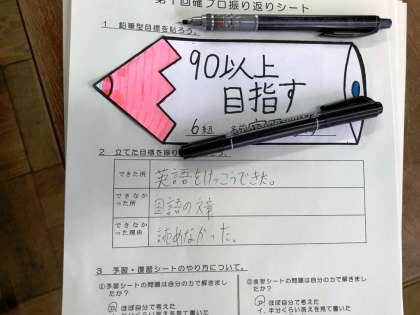 第1回確プロ振り返りシート
1 鉛筆型目標を貼ろう。
90以上
目指す
6組 名前
2 立てた目標を振り
できた所
英語をけっこうできた。
できなかった所
国語の文章
できなかった理由
読めなかった。
3 予習・復習シートのやり方について。
①予習シートの問題は自分の力で解きましたか?
②復習シートの問題は自分の力で解きましたか?
ア ほぼ自分で考えた
イ 半分くらい答えを見て書いた
ア ほぼ自分で考えた
イ 半分くらい答えを見て書いた